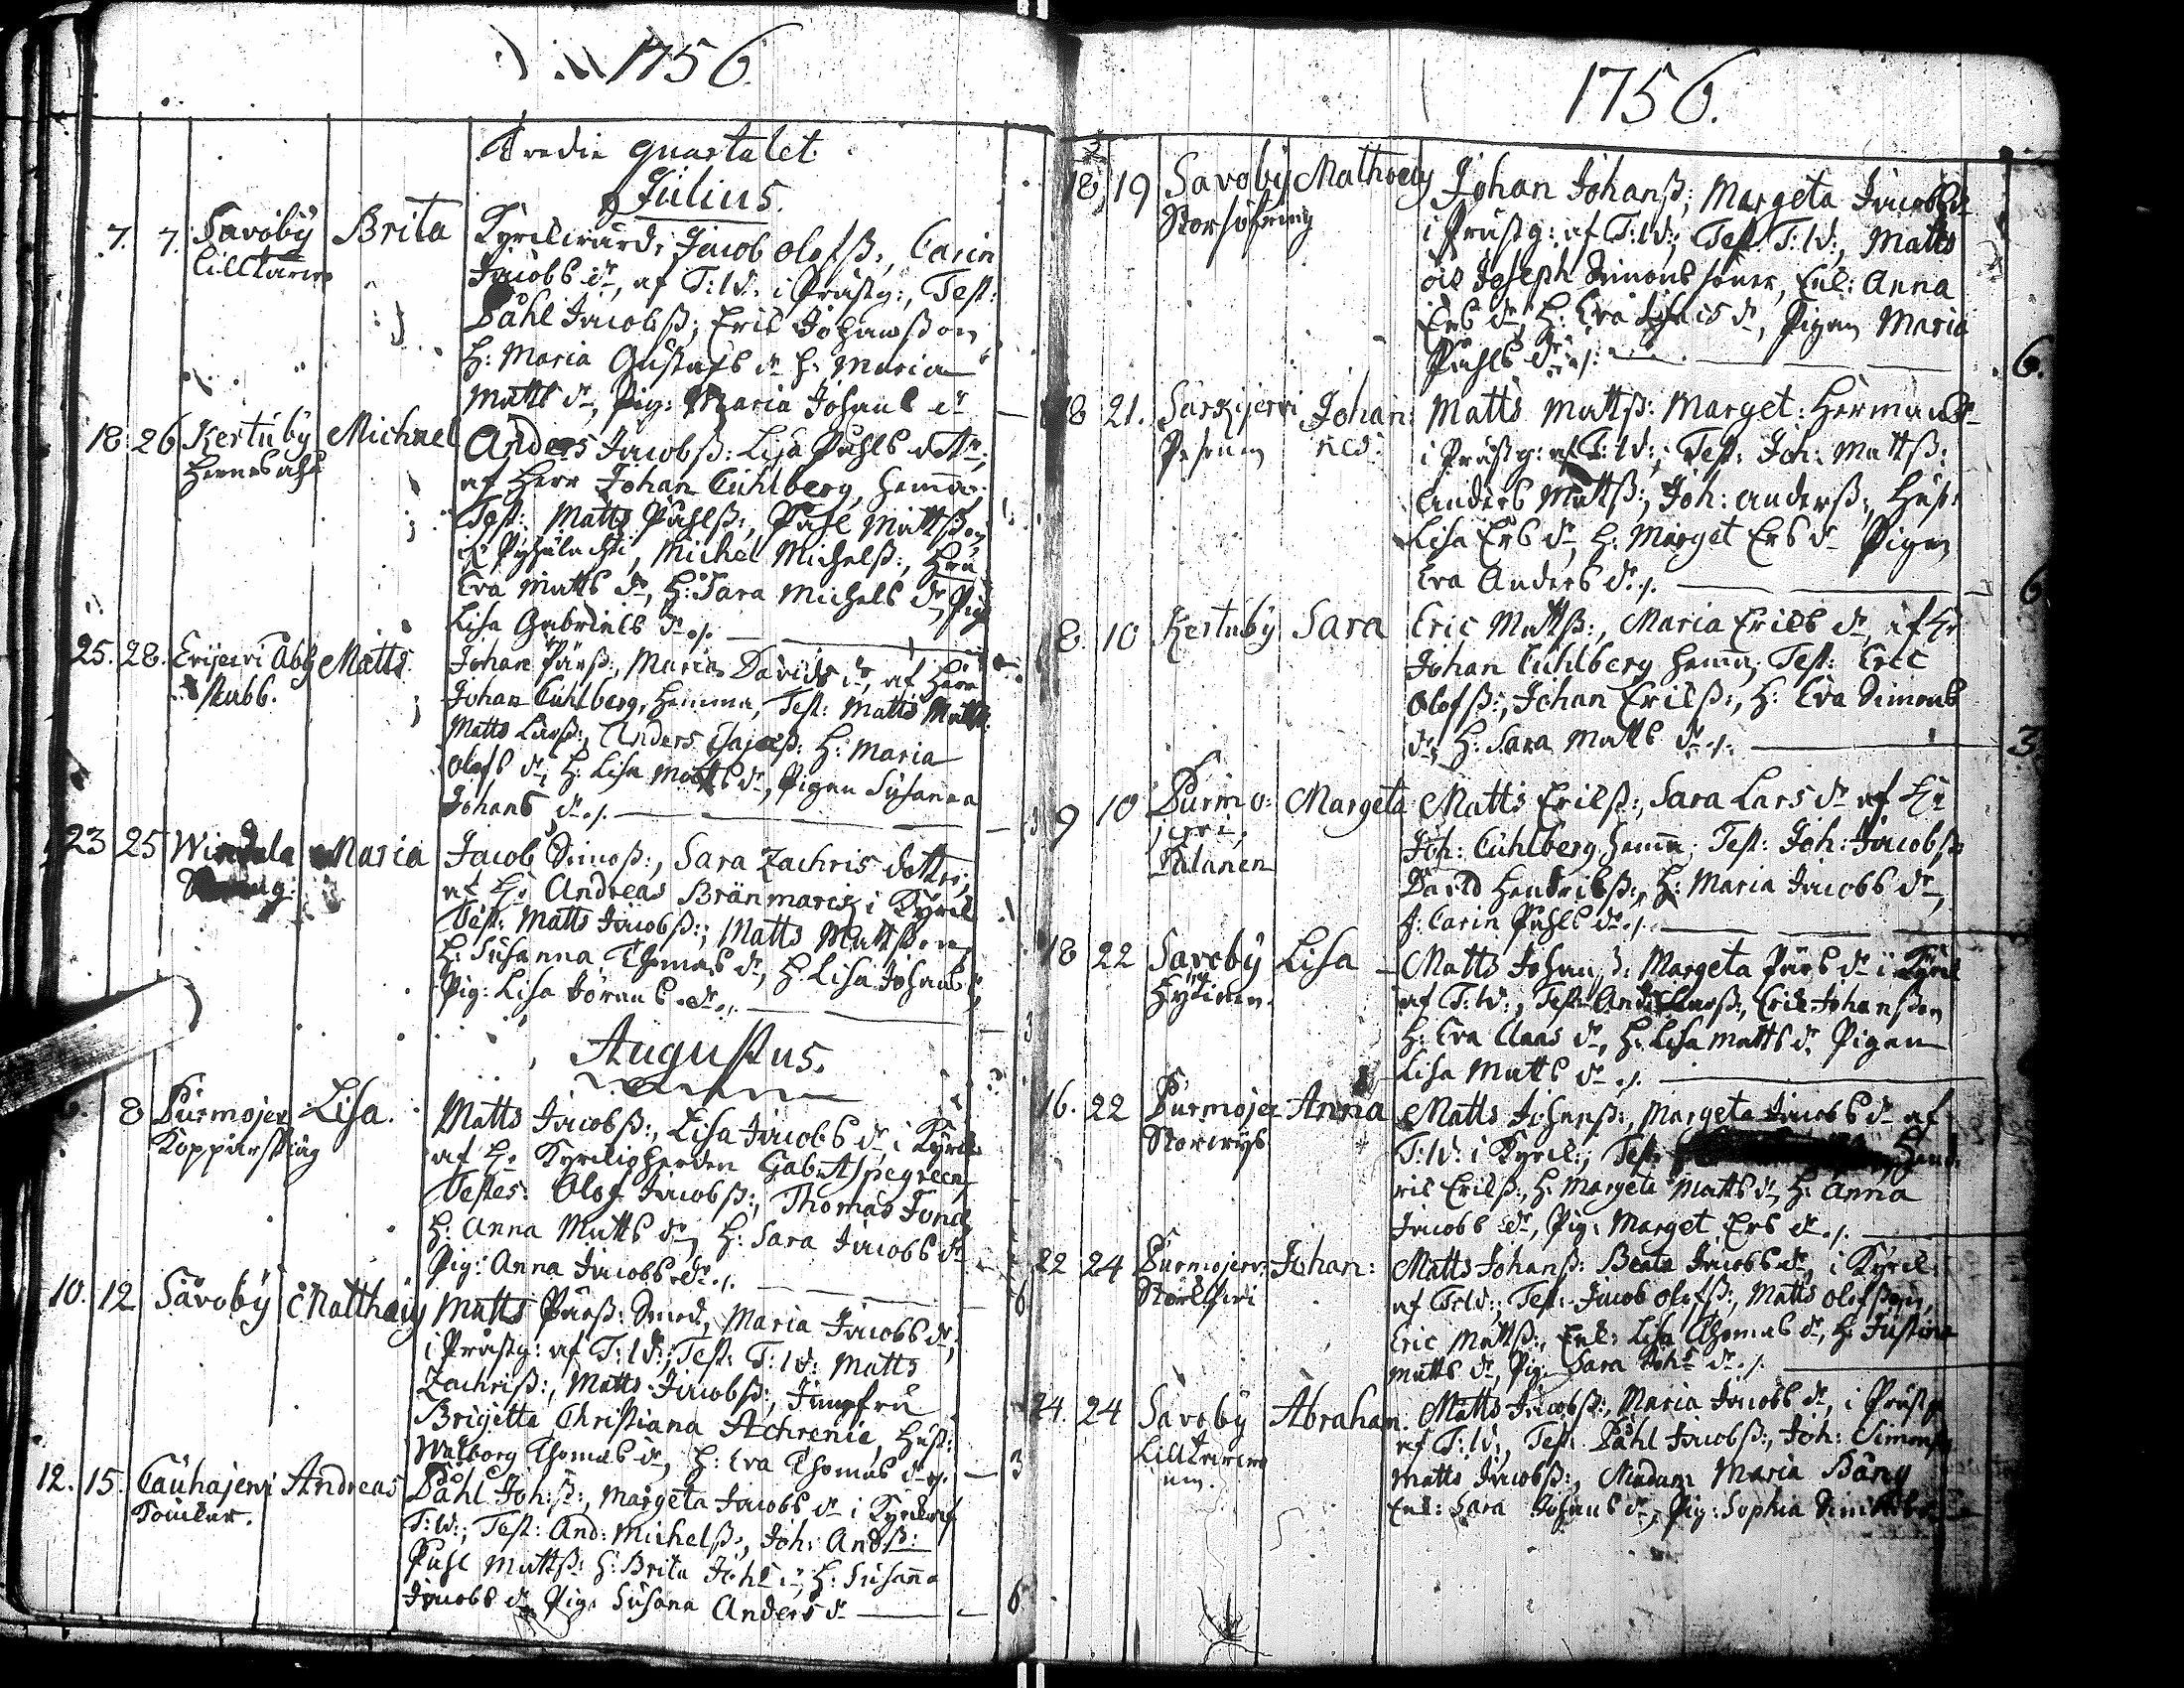 1756.
Tredie quartalet.
Julius.
7. 7. Savoby Brita Kyrckiwärd: Jacob Olofß:, Carin
Lilltarro Jacobs dr, af T:W: i Prästg:, Test:
Påhl Jacobß:, Eric Johansson
H: Maria Gustafs dr H: Maria
Matts dr, Pig: Maria Johans dr
18 26 Kertuby Michael Anders Jacobß: Lisa Påhls dotter,
af Herr Johan Cuhlberg, hemma,
Test: Matts Påhlß:, Påhl Mattßon
Michel Michelß:, Hru
Eva Matts dr, H: Sara Michels dr, Pig
Lisa Gabriels dr ./.
25. 28. Evijervi Åby Matts Johan Pärß:, Maria Davids dr, af Herr
stubb. Johan Cuhlberg, hemma, Test: Matts Mattß:
Matts Larß:, Anders H: Maria
Olofs dr, H: Lisa Matts dr, Pigan Susanna
Johans dr ./.
23 25 Windala Maria Jacob Simoß:, Sara Zachris dotter,
af H: Andreas Brännmarck i Kyrck
Test: Matts Jacobß:, Matts Mattßon,
H: Susanna Thomas dr, H: Lisa Johans
Pig: Lisa Jörans dr ./. 3
Augustus.
8 Purmojer Lisa. Matts Jacobß:, Lisa Jacobs dr, i Kyrck:
af H: Kyrckioherden Gab: Aspegreen,
Testes: Olof Jacobß:, Thomas
H: Anna Matts dr, H: Sara Jacobs dr
Pig: Anna Jacobs dr ./. 6
10. 12 Savoby Matthæus Matts Pärß: Smed, Maria Jacobs dr,
i Prästg: af T:W:, Test: T:W: Matts
Zachriß:, Matts Jacobß:, Jumpfru
Brigetta Christiana Achrenia, Hust:
Walborg Thomas dr, H: Eva Thomas dr ./. 3
12. 15. Cauhajervi Andreas Påhl Joh:ß:, Margeta Jacobs dr i Kyrck af
T:W:, Test: And: Michelß:, Joh: Andß:
Påhl Mattß: H: Brita Joh: dr, H: Susanna
Jacobs dr Pig: Susana Anders dr 6
1756.
18 19 Savoby Mathæus Johan Johanß:, Margeta Jacobs dr
i Prästg: af T:W:, Test: T:W:, Matts
och Joseph Simons söner, Enk: Anna
Ers dr, H: Eva dr, Pigan Maria
Påhls dr ./. 6.
18 21. Särkijervi Johan: Matts Mattß: Marget: Hermans dr
i Prästg: af T:W:, Test: Joh: Mattß:
Anders Mattß:, Joh: Anderß:, Hust:
Lisa Ers dr, H: Marget Ers dr Pigan
Eva Anders dr ./. 6
8. 10 Kertuby Sara Eric Mattß:, Maria Erics dr, af Hr
Johan Cuhlberg hemma, Test: Eric
Olofß:, Johan Ericß:, H: Eva Simons
dr, H: Sara Matts dr ./. 3
9 10 Purmo: Margeta Matts Ericß:, Sara Lars dr af Hr
jervi, Joh: Cuhlberg hemma, Test: Joh: Jacobß:
David Hendricß:, H: Maria Jacobs dr,
H: Carin Påhls dr ./.
18 22 Savoby Lisa Matts Johanß: Margeta Pärs dr i Kyrck
Hytinen. af T:W:, Test: Larß:, Eric Johanßon
H: Eva Claas dr, H: Lisa Matts dr, Pigan
Lisa Matts dr ./.
16. 22 Purmojer Anna Matts Johanß:, Margeta Jacobs dr af
T:W: i Kyrck:, Test: Hend:
ric Ericß:, H: Margeta Matts dr, H: Anna
Jacobs dr, Pig: Marget Ers dr ./.
22 24 Purmojerv: Johan: Matts Johanß: Beata Jacobs dr, i Kyrck:
af T:W:, Test: Jacob Olofß:, Matts Olofßon,
Eric Mattß:, Enk: Lisa Thomas dr, H: Justina
Matts dr, Pig: Sara Joh: dr ./.
24. 24 Savoby Abraham. Matts Jacobß:, Maria Jacobs dr, i Prästg:
af T:W:, Test: Påhl Jacobß:, Joh: Simonß:
Matts Jacobß:, Madam Maria Bäng
Enk: Sara Johans dr, Pig: Sophia